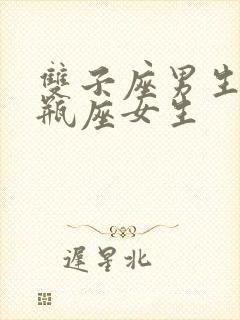 雙子座男生
瓶座女生
遲星北